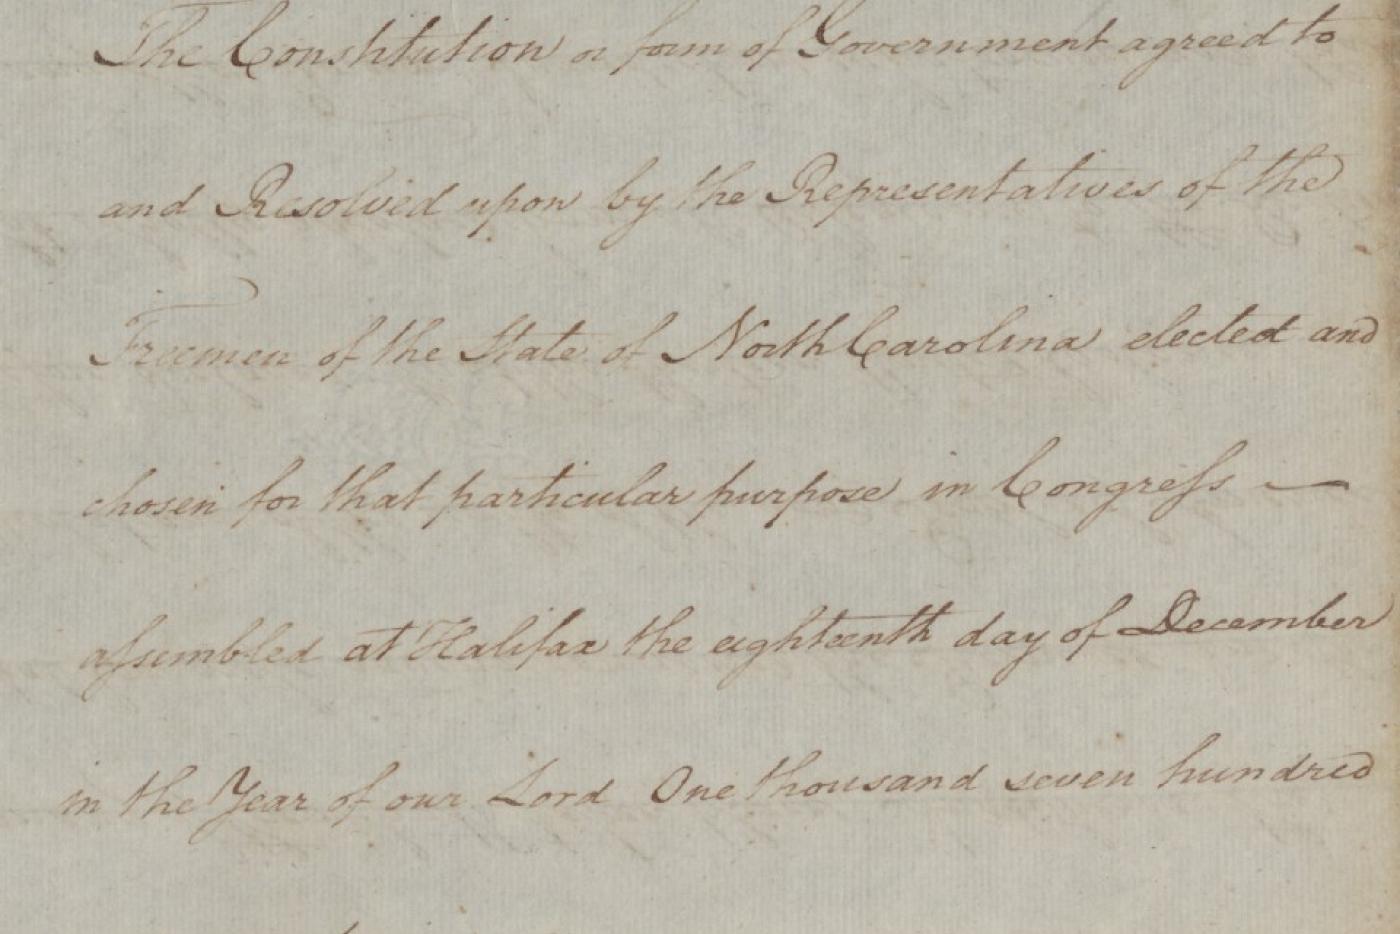 The Constitution or form of Government agreed to
and Resolved upon by the Representatives of the
Freemen of the State of North Carolina elected and
chosen for that particular purpose in Congreſs —
aſsembled at Halifax the eighteenth day of December
in the Year of our Lord One thousand seven hundred